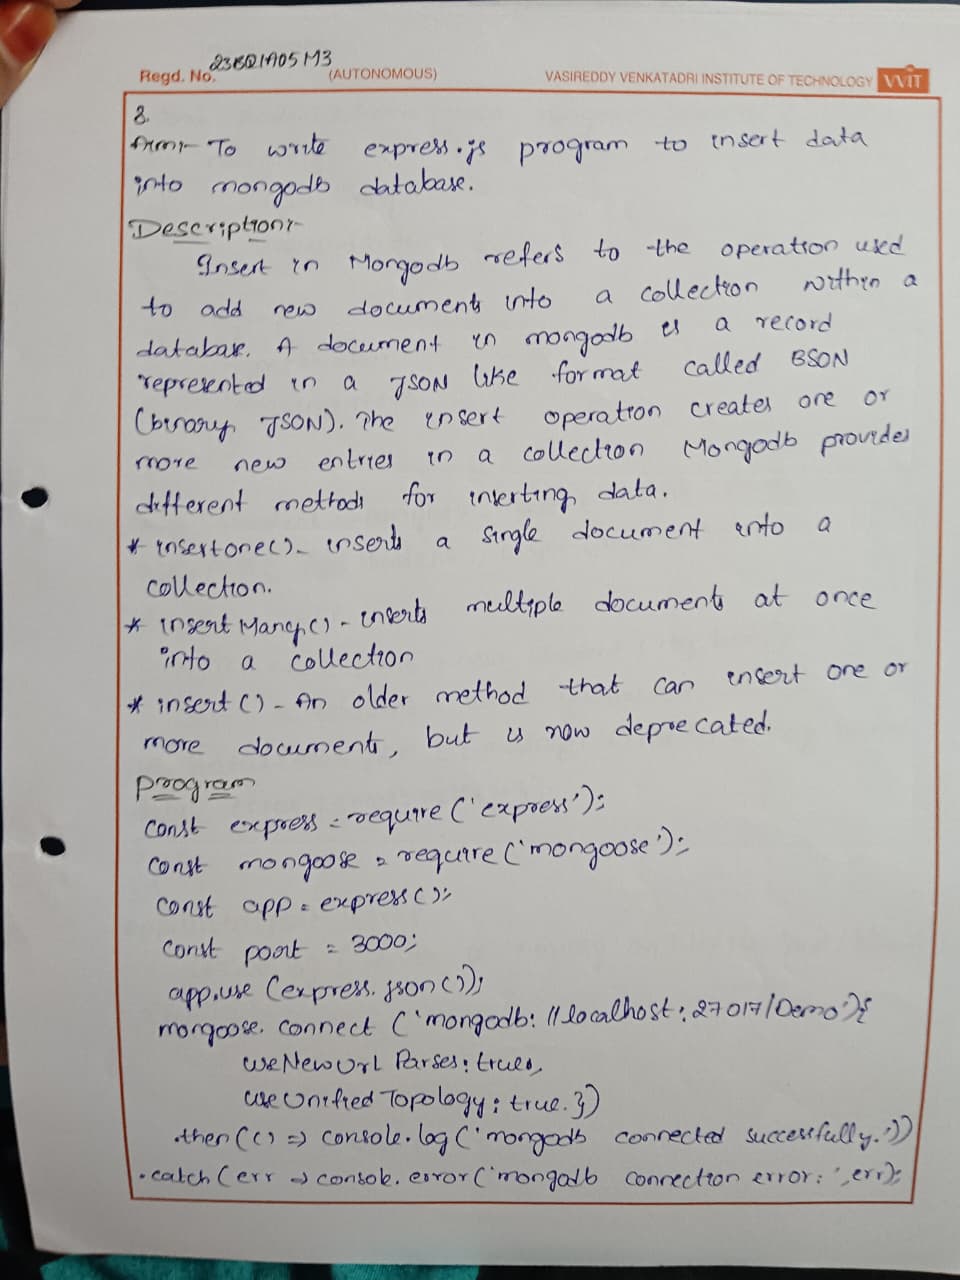 Regd. No. 23BQ1A05M3 (AUTONOMOUS) VASIREDDY VENKATADRI INSTITUTE OF TECHNOLOGY VVIT
8.
Aim:- To write express.js program to insert data
into mongodb database.
Description:-
Insert in Mongodb refers to the operation used
to add new documents into a collection within a
database. A document in mongodb is a record
represented in a JSON like format called BSON
(binary JSON). The insert operation creates one or
more new entries in a collection Mongodb provides
different methods for inserting data.
* insertone() - inserts a single document into a
collection.
* insertMany() - inserts multiple documents at once
into a collection
* insert() - An older method that can insert one or
more documents, but is now deprecated.
Program
const express = require('express');
const mongoose = require('mongoose');
const app = express();
const port = 3000;
app.use(express.json());
mongoose.connect('mongodb://localhost:27017/Demo'){
useNewUrl Parses: true,
useUnified Topology: true.})
.then(() => console.log('mongodb connected successfully.'))
.catch(err => console.error('mongodb connection error:', err);